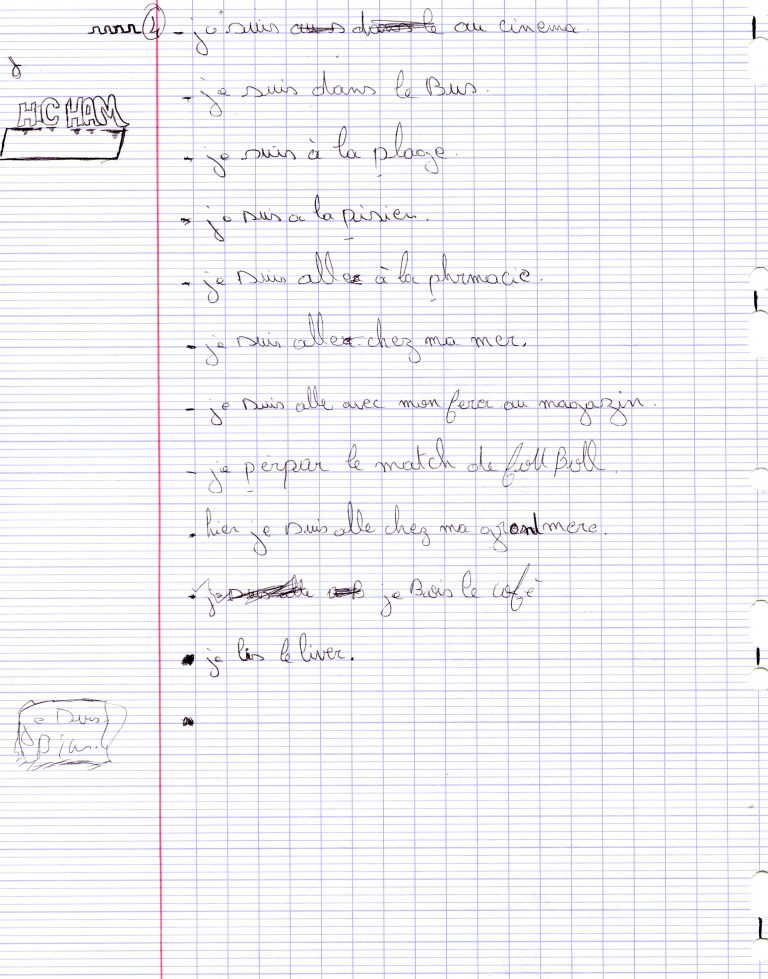 2 - je suis au cinema.
- je suis dans le Bus.
HICHAM
- je suis à la plage.
- je suis a la pisien.
- je suis alle à la phrmacie.
- je suis alle chez ma mer.
- je suis alle avec mon fera au magazin.
- je perpar le match de foll Boll.
- hier je suis alle chez ma grandmere.
- je Bois le cofé
- je lis le liver.
je suis
Bian.